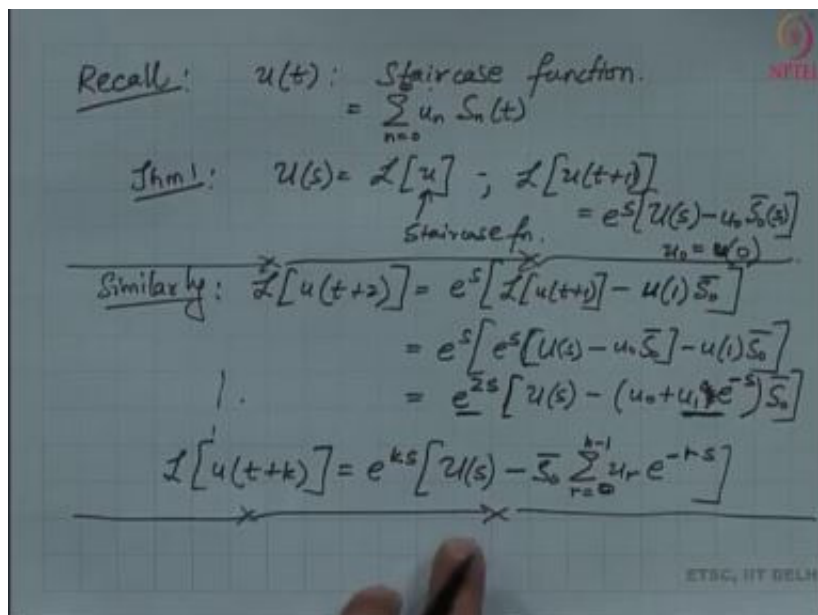 Recall: u(t): Staircase function.
NPTEL
= Σ_{n=0} u_n S_n(t)
Thm!: U(s) = ℒ[u] ; ℒ[u(t+1)]
Staircase fn. = e^s[U(s) - u_0 S̄_0(s)]
u_0 = u(0)
Similarly: ℒ[u(t+2)] = e^s[ℒ[u(t+1)] - u(1) S̄_0]
= e^s[e^s[U(s) - u_0 S̄_0] - u(1) S̄_0]
= e^{2s}[U(s) - (u_0 + u_1 e^{-s}) S̄_0]
ℒ[u(t+k)] = e^{ks}[U(s) - S̄_0 Σ_{r=0}^{k-1} u_r e^{-rs}]
ETSC, IIT DELH